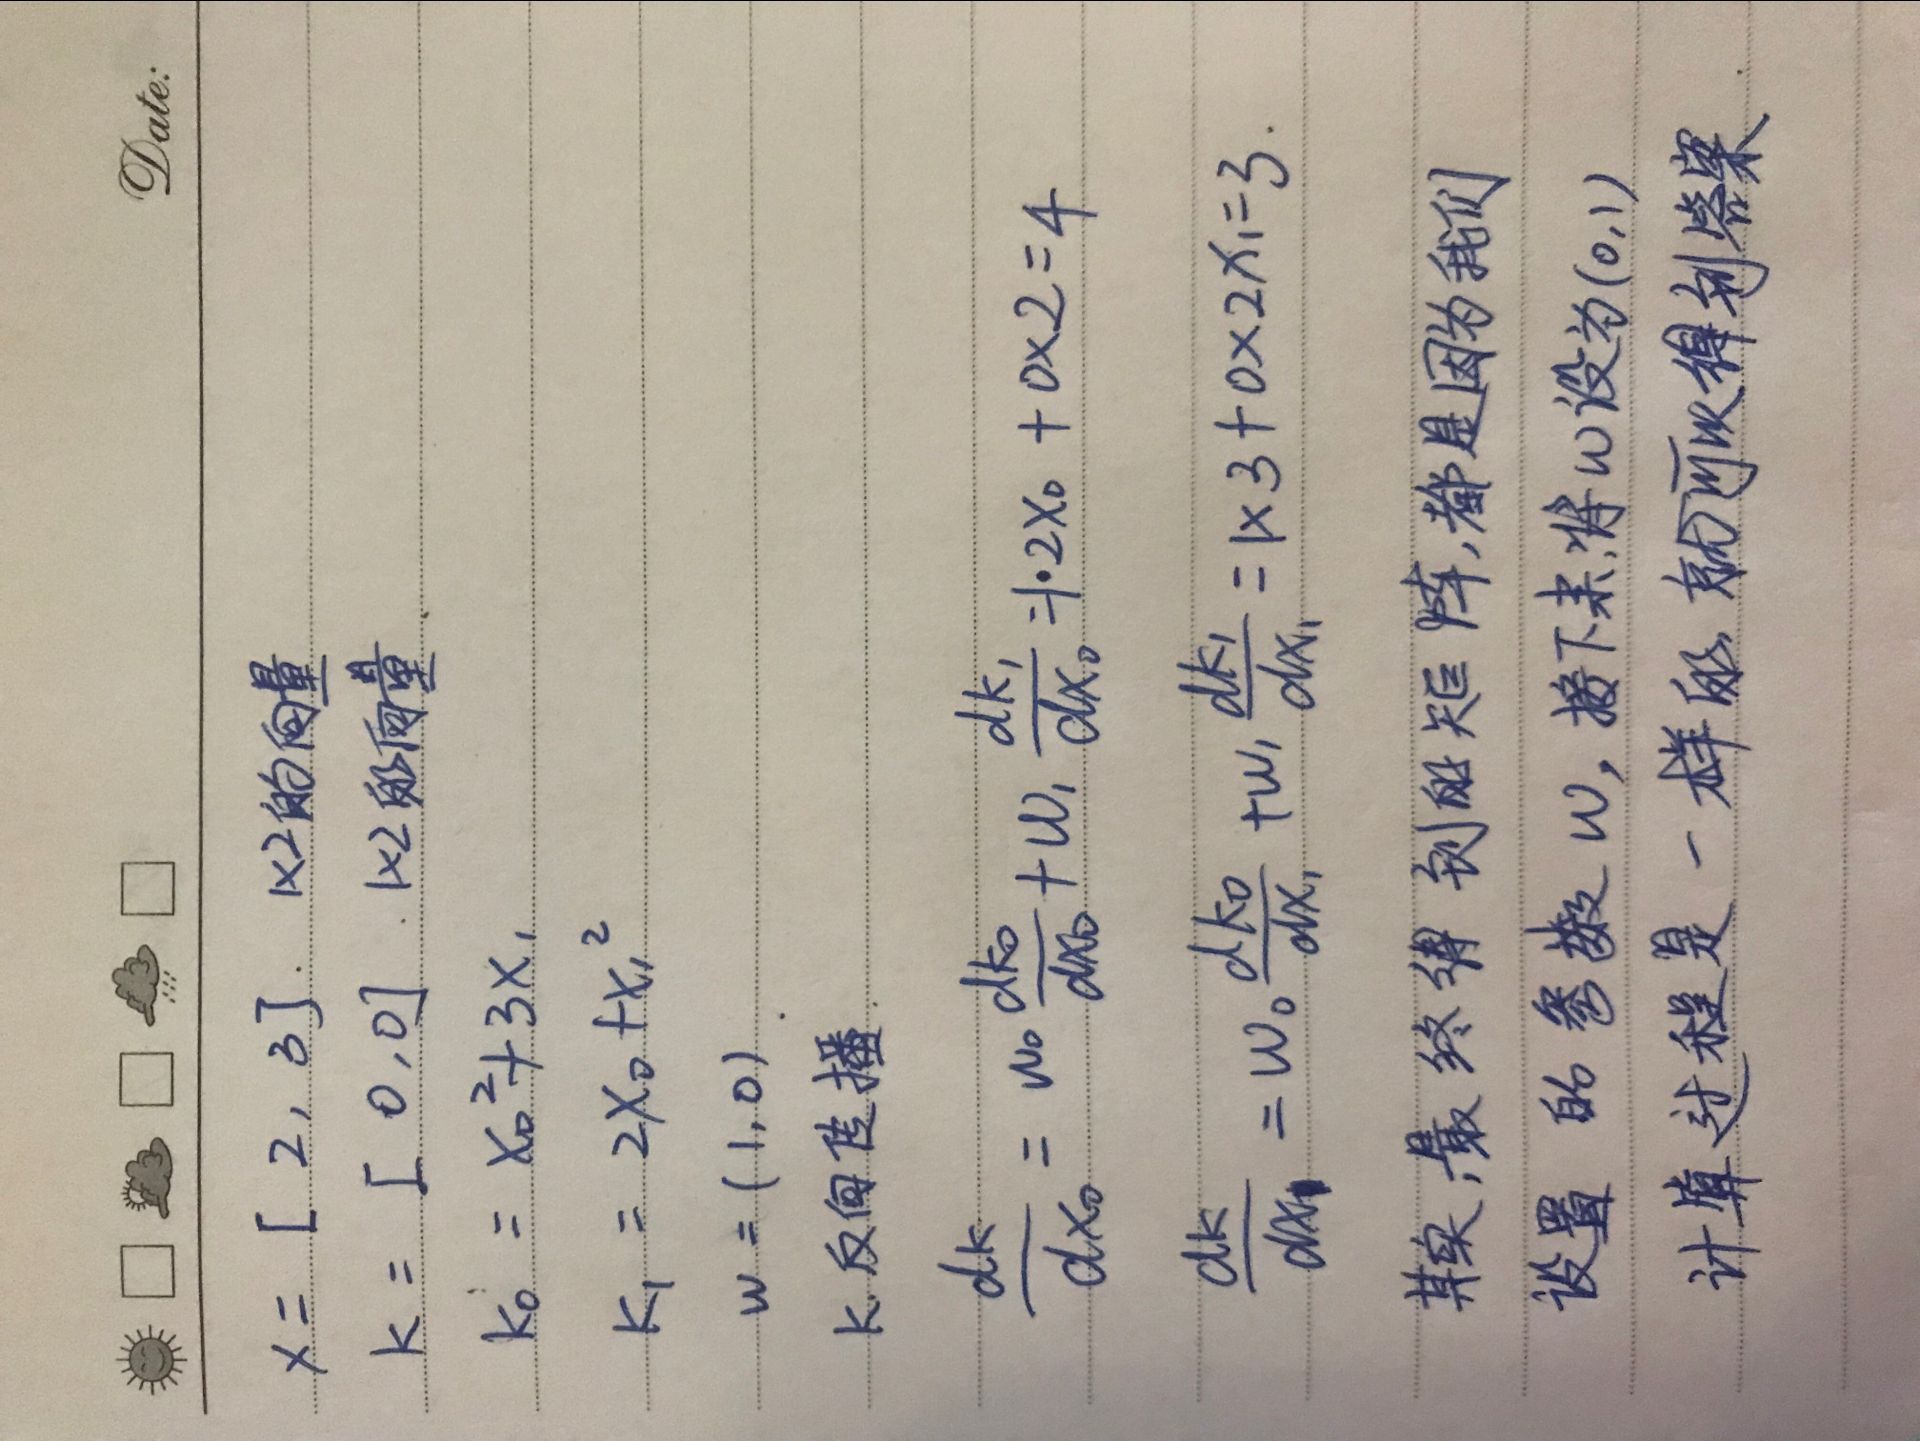 Date:
x = [2, 3]. 1×2的向量
k = [0, 0]. 1×2的向量.
k₀ = x₀² + 3x₁
k₁ = 2x₀ + x₁²
w = (1, 0).
k.反向传播.
dk/dx₀ = w₀ dk₀/dx₀ + w₁ dk₁/dx₀ = 1·2x₀ + 0×2 = 4
dk/dx₁ = w₀ dk₀/dx₁ + w₁ dk₁/dx₁ = 1×3 + 0×2x₁ = 3.
其实,最终得到的矩阵,都是因为我们
设置的参数w,接下来将w设为(0,1)
计算过程是一样的,就可以得到答案.